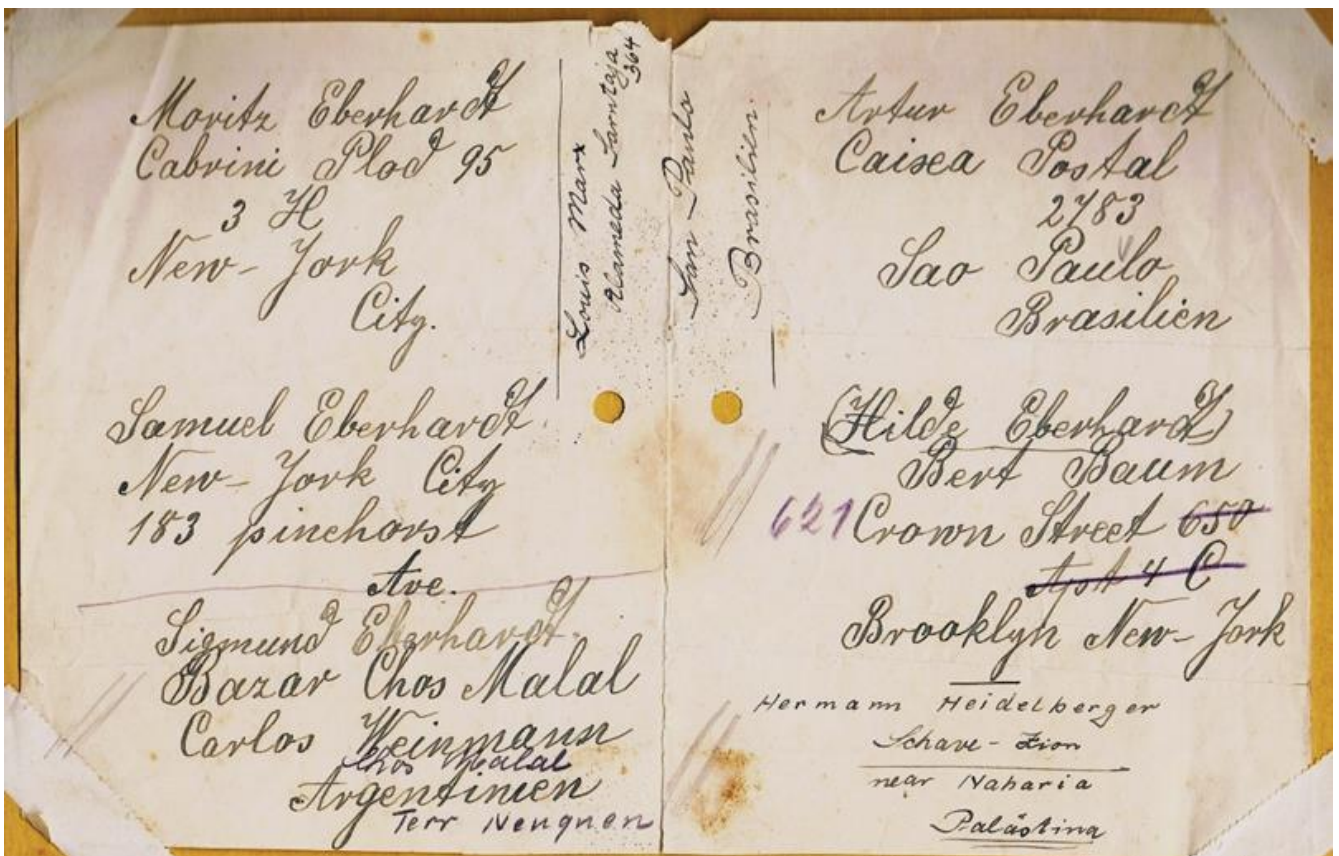 Moritz Eberhardt
Cabrini Plod 95
3 H
New-York
City.
Samuel Eberhardt.
New-York City
183 pinehorst
Ave.
Sigmund Eberhardt.
Bazar Chos Malal
Carlos Weinmann
Chos Malal
Argentinien
Terr Neuquen
Louis Marx
Alameda
364
San-Paulo
Brasilien.
Artur Eberhardt
Caixea Postal
2783
Sao Paulo
Brasilien
(Hilde Eberhardt)
Bert Baum
621 Crown Street 650
Apt 4 C
Brooklyn New-York
Hermann Heidelberger
Schave-Zion
near Naharia
Palästina